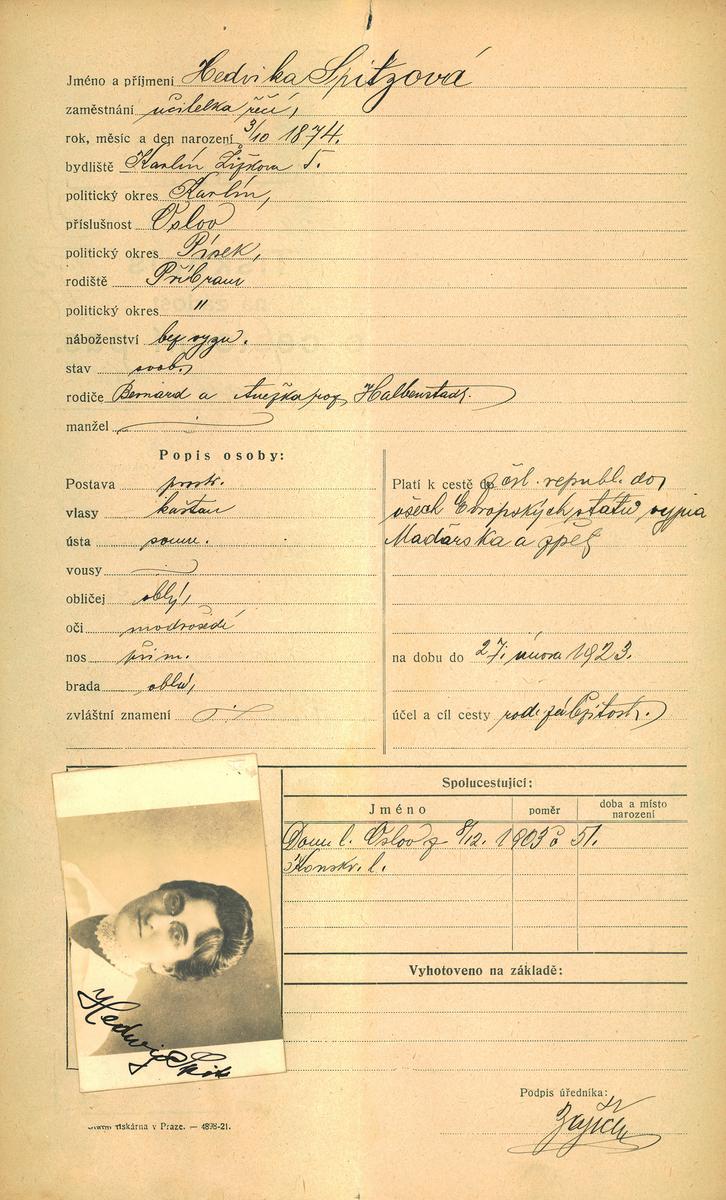 Jméno a příjmení Hedvika Spitzová
zaměstnání učitelka řečí,
rok, měsíc a den narození 3/10 1874.
bydliště Karlín Žižkova 5.
politický okres Karlín,
příslušnost Oslov
politický okres Písek,
rodiště Příbram
politický okres "
náboženství bez vyzn.
stav svob.
rodiče Bernard a Anežka roz. Halbenstadt.
manžel
Popis osoby:
Postava prostř.
vlasy kaštan
ústa soum.
vousy
obličej oblý,
oči modrošedé
nos přim.
brada oblá,
zvláštní znamení
Platí k cestě do čsl. republ. do
všech Evropských států vyjma
Maďarska a zpět
na dobu do 27. února 1923.
účel a cíl cesty rod. záležitost.
Spolucestující:
Jméno poměr doba a místo narození
Dom. l. Oslov z 8/12. 1903 č 51.
Konskr. l.
Vyhotoveno na základě:
Hedwig
Podpis úředníka:
tiskárna v Praze. — 4898-21.